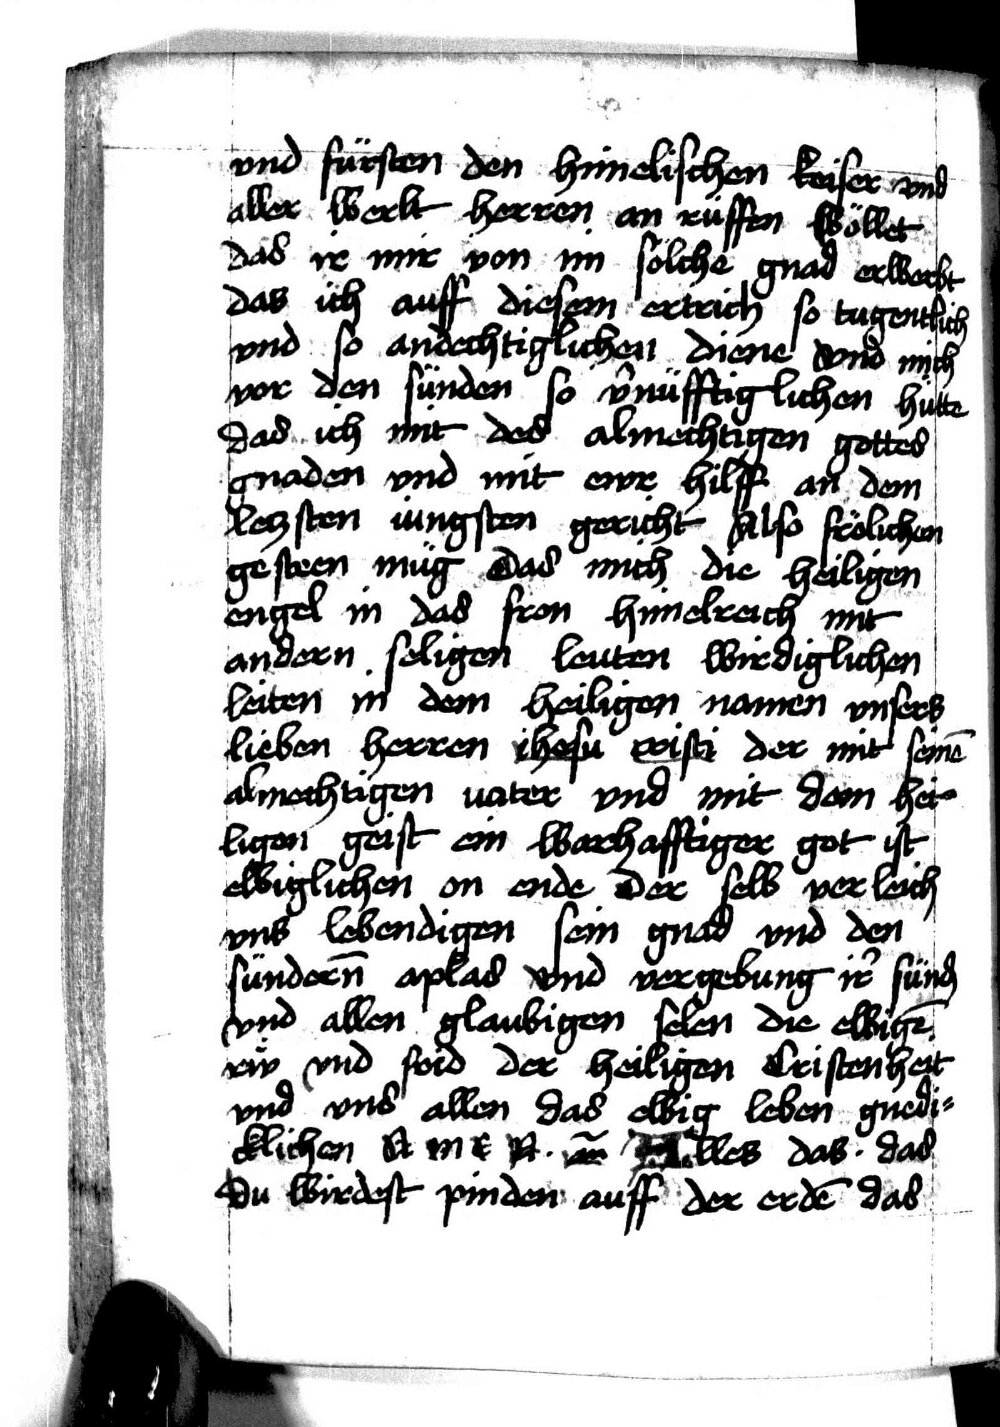 vnd fürsten den himelischen keiser vnd
aller werlt herren an rüffen wöllet
das ir mir von im sölche gnad erwerbt
das ich auff diesem ertrich so tugentlich
vnd so andechtiglichen diene vnd mich
vor den sünden so v̂nüfftiglichen hütte
das ich mit des almechtigen gottes
gnaden vnd mit ewr hilff an dem
letzsten iungsten gericht Also frölichen
gesteen müg Das mich die heiligen
engel in das fron himelreich mit
andern seligen leuten wirdiglichen
leiten in dem heiligen namen vnsers
lieben herren ihesu cristi der mit seinē
almechtigen vater vnd mit dem hei-
ligen geist ein warhafftiger got ist
ewiglichen on ende Der selb verleich
vns lebendigen sein gnad vnd den
sündern̄ aplas vnd vergebung ir̂ sünd
vnd allen glaubigen selen die ewigē
rẅ vnd frid der heiligen Cristenheit
vnd vns allen das ewig leben gnedi-
cklichen A M E N. Alles das. das
du wirdest pinden auff der erdē das